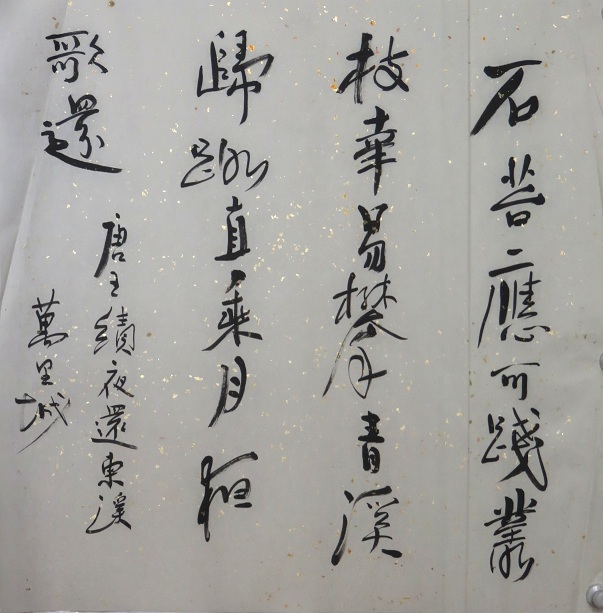 石苔應可踐叢
枝幸易攀青溪
歸路直乘月夜
歌還
唐王績夜還東溪
萬里城